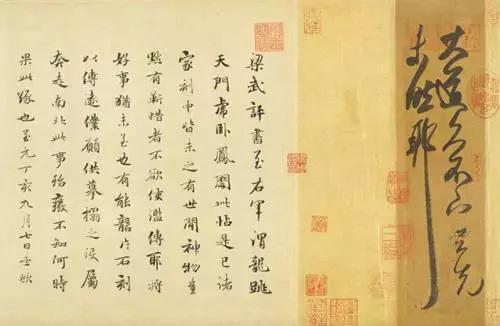 大道久不下与先
未然耶
梁武評書至右軍謂龍跳
天門虎卧鳳闕此帖是已諸
家刻中皆未之有世間神物豈
默有靳惜者不欲使濫傳耶將
好事猶未至也有能礱片石刻
以傳遠僕願供摹搨之役屬
奔走南北此事殆廢不知何時
果此緣也至元丁亥九月七日孟頫